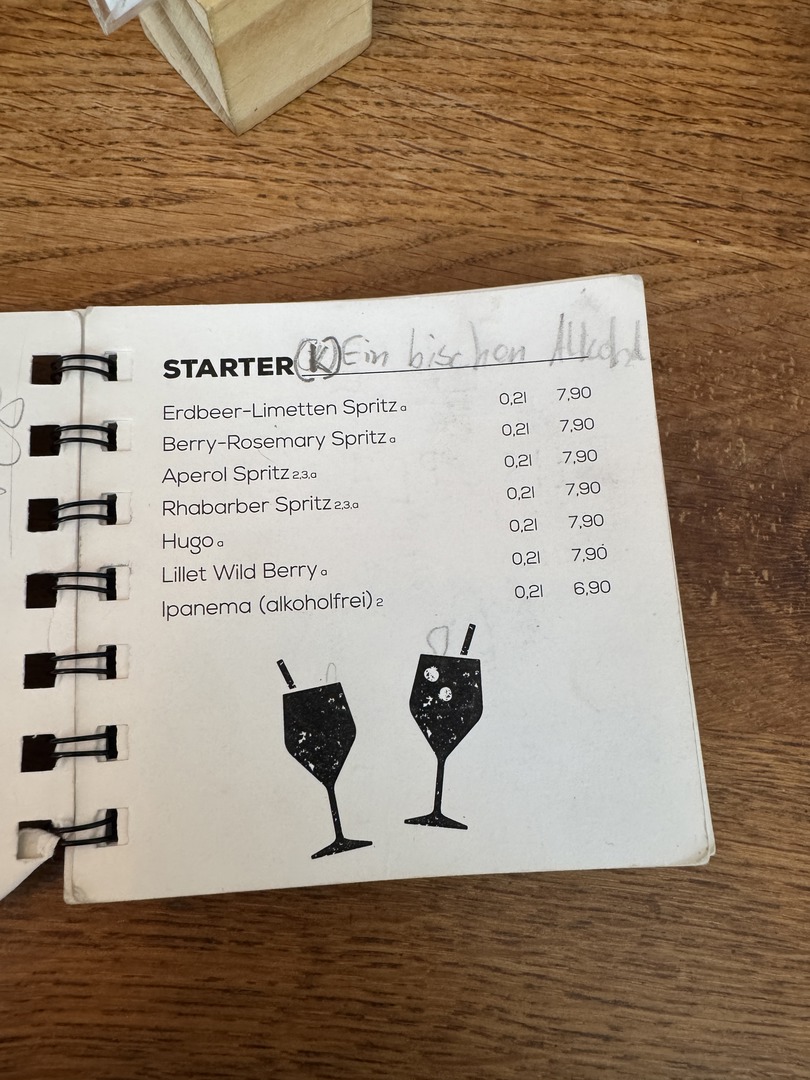 STARTER (K)Ein bischen Alkohol
Erdbeer-Limetten Spritz a 0,2l 7,90
Berry-Rosemary Spritz a 0,2l 7,90
Aperol Spritz 2,3,a 0,2l 7,90
Rhabarber Spritz 2,3,a 0,2l 7,90
Hugo a 0,2l 7,90
Lillet Wild Berry a 0,2l 7,90
Ipanema (alkoholfrei) 2 0,2l 6,90